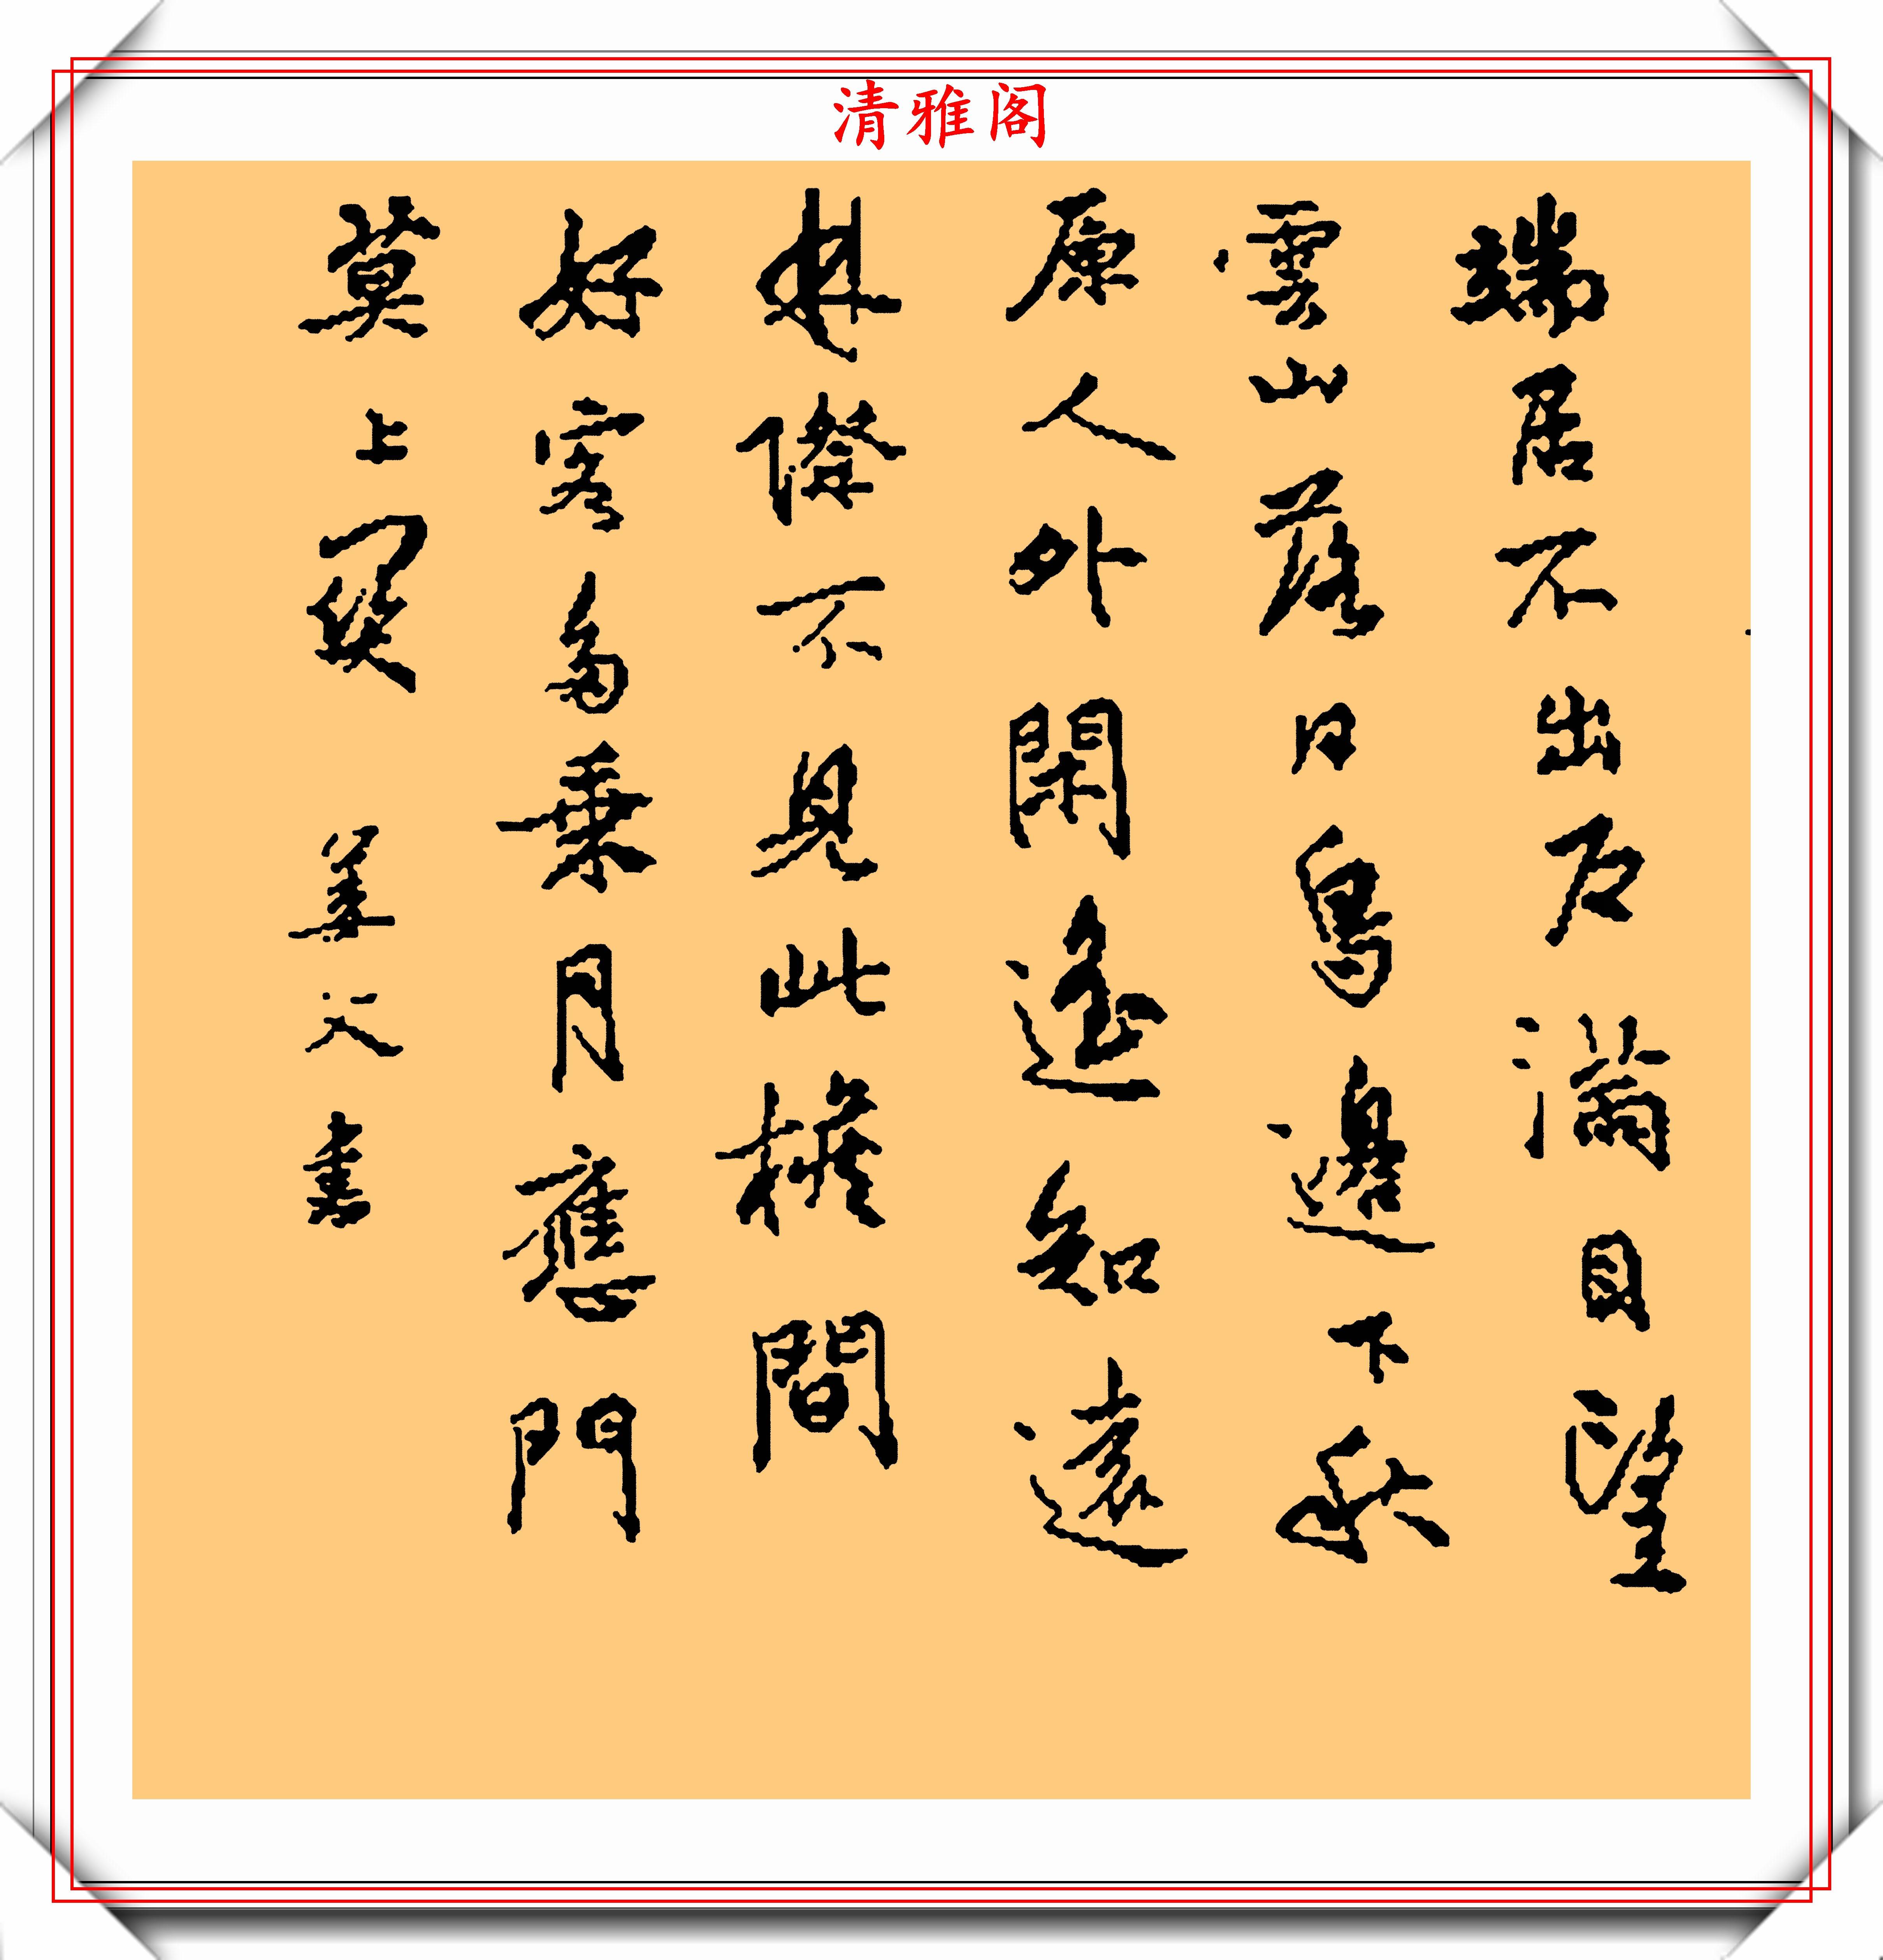 清雅阁
端居不出户滿目望
雲山落日鳥邊下秋
原人外閑遥知遠
林際不見此檐間
好客多乘月應門
莫上關
書